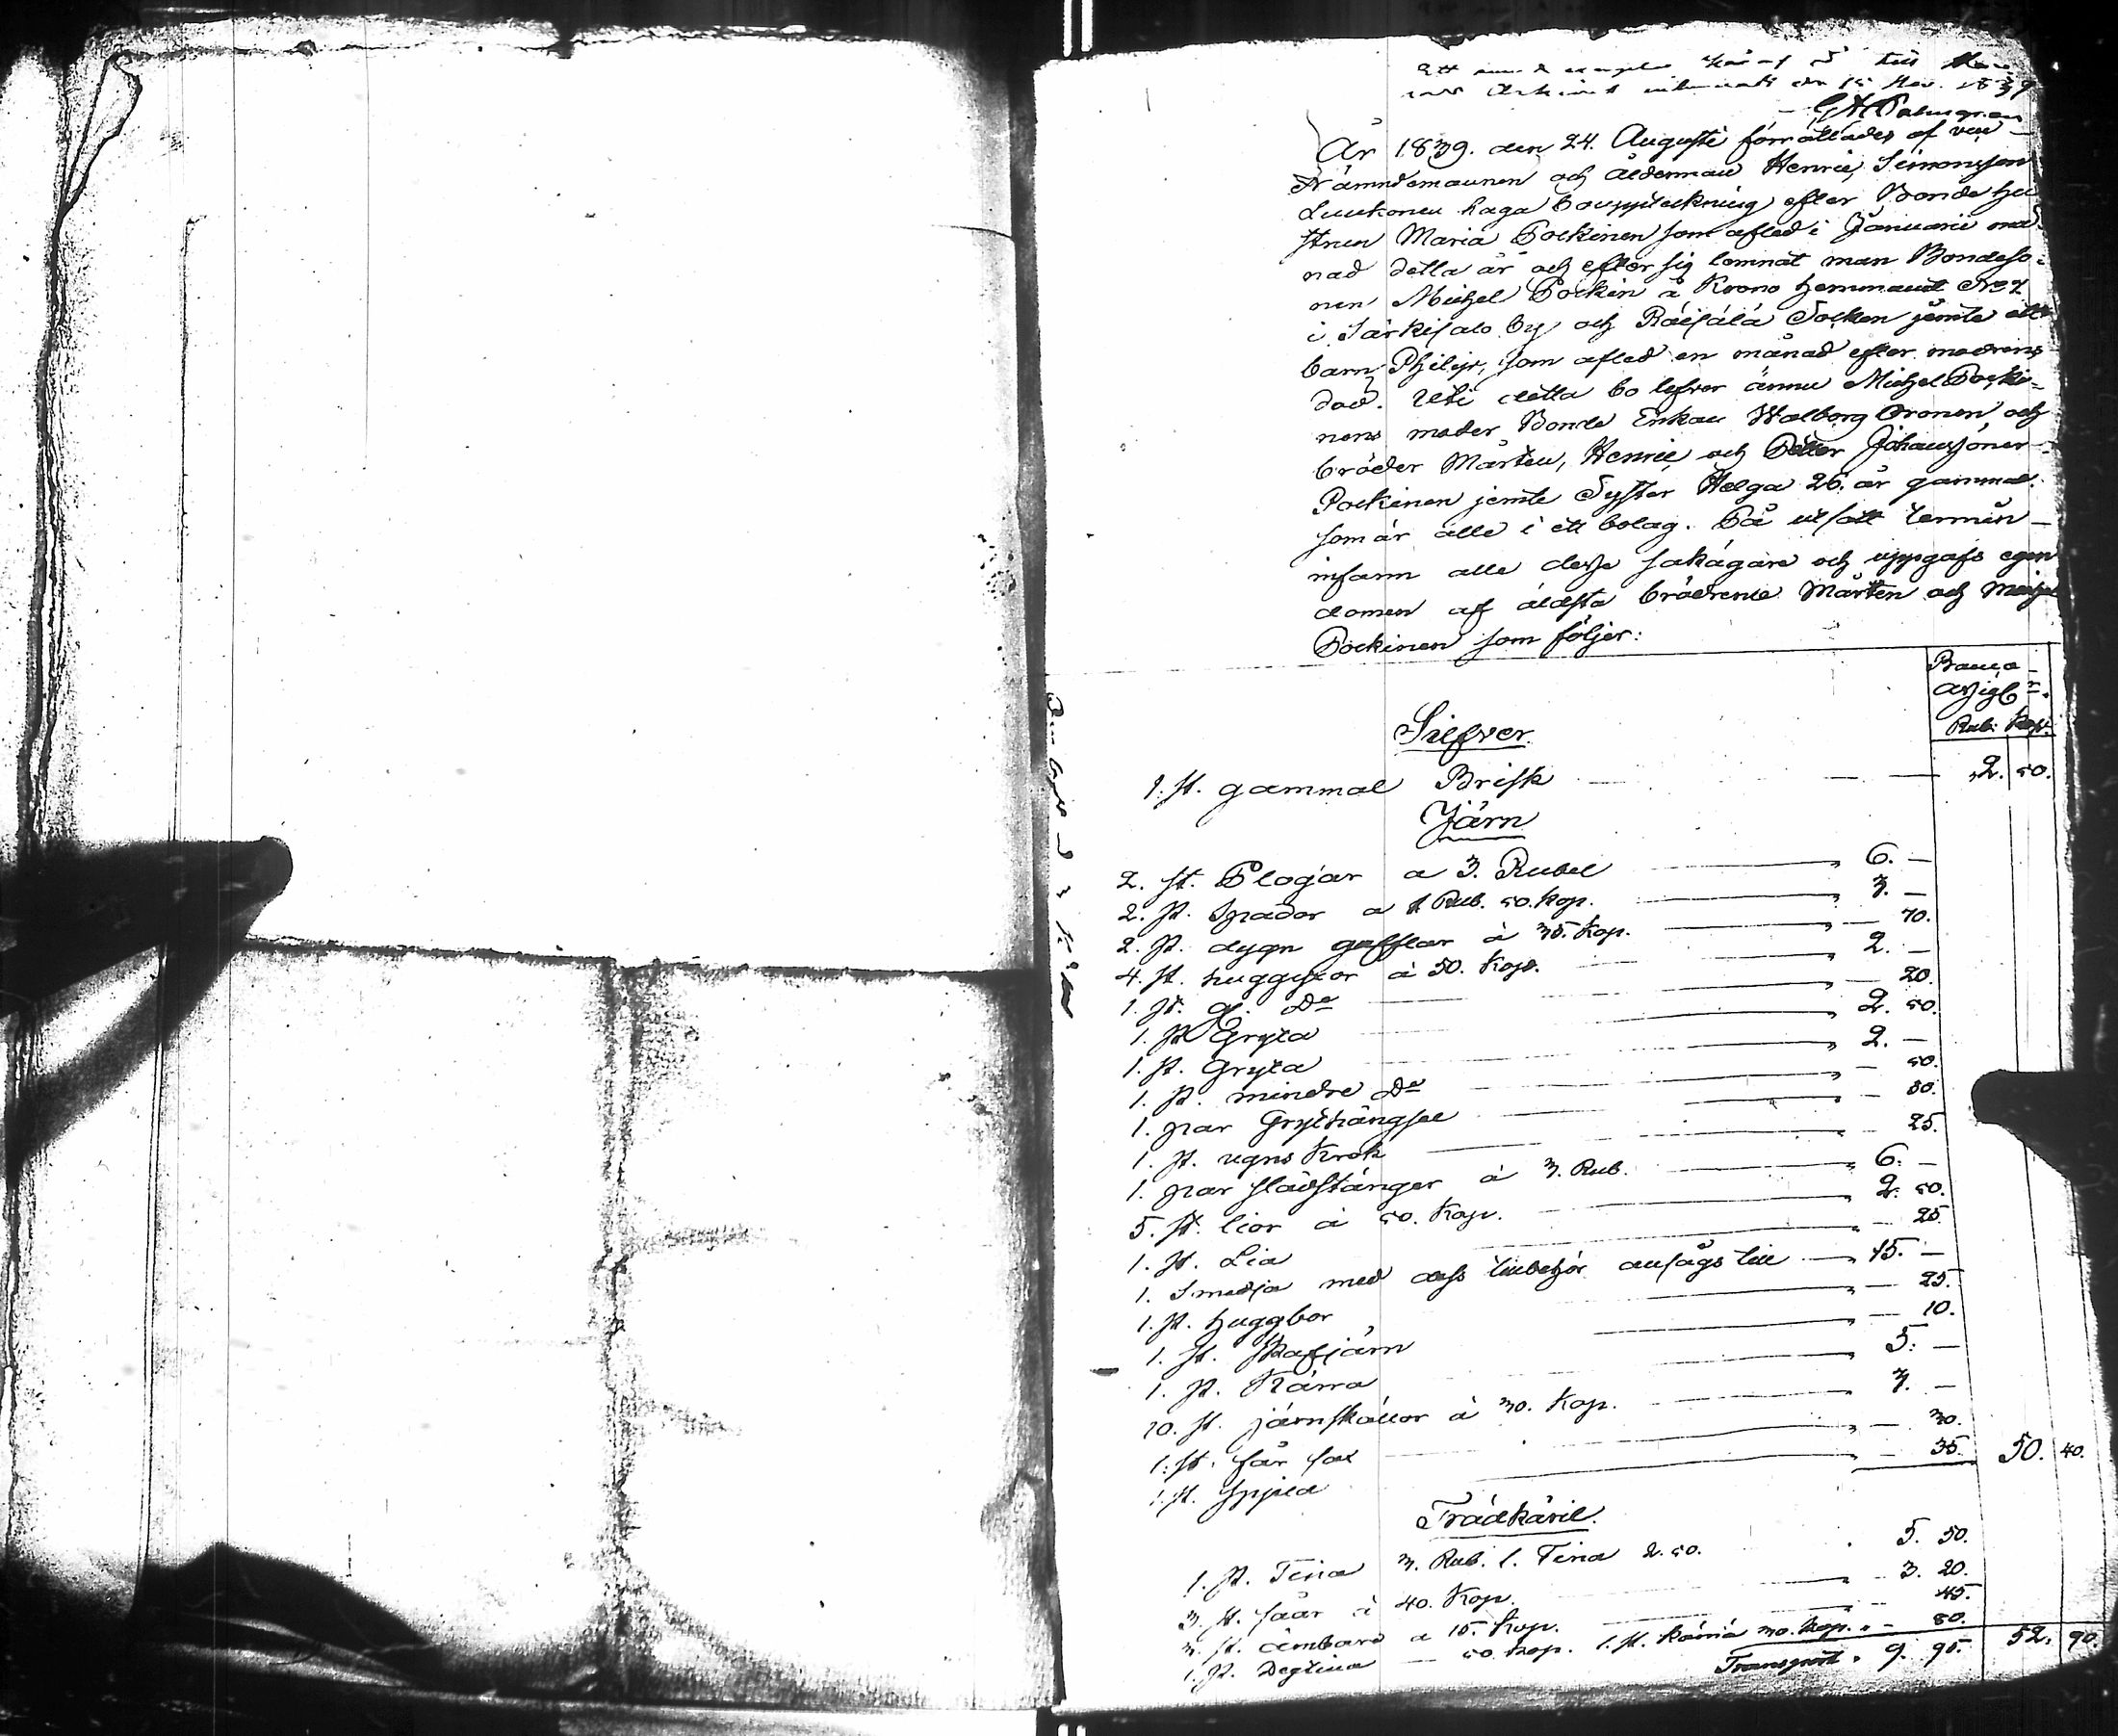 Ett exemplar häraf till
Arkivet den 15 Nov. 1839
Palmgren
År 1839. den 24. Augusti förrättades af
Nämndemannen och åldermän Henric Simonsson
Luukonen laga bouppteckning efter Bonde hu
strun Maria Pockinen som afled i Januarii må
nad detta år och efter sig lemnat man Bondeso-
nen Michel Pockin å Krono hemmanet
i Särkisalo by och Räisälä Socken jemte ett
barn Philip, som afled en månad efter modrens
död. Uti detta bo lefver ännu Michel Pocki-
nens moder Bonde Enkan Walborg Oronen och
bröder Mårten, Henric och Petter Johanssöner
Pockinen jemte Syster Helga 26. år gammal.
som är alle i ett bolag. På utsatt termin
infann alle desse sakägare och uppgafs egen
domen af äldsta bröderne Mårten och Michel
Pockinen som följer:
Banco
assign.
Rub: Kop:
Silfver
1. st. gammal Brisk 2. 50.
Järn
2. st. Plogar a 3. Rubel 6. —
2. st. Spador a 1 Rub. 50. kop. 3. —
2. st. dygn gafflar à 35. Kop. — 70.
4. st. huggyxor à 50. Kop. 2. —
1. st. gl. Do — 20.
1. st. Gryta 2. 50.
1. st. Gryta 2. —
1. st. mindre Do — 50.
1. par Grythängsel — 30.
1. st. ugns Krok — 25.
1. par slädstänger à 3. Rub. 6. —
5. st. lior à 50. Kop. 2. 50.
1. st. Lia — 25.
1. Smedja med dess tillbehör ansågs till 15. —
1. st. huggbor — 25.
1. st. skafjärn — 10.
1. st. Kärra 5. —
10. st. järnskällor à 30. Kop. 3. —
1. st. får sax — 30.
1. st. — 35. 50. 40.
Trädkäril.
1. st. Tina 3. Rub. 1. Tina 2. 50. 5. 50.
3. st. såår à 40. Kop. 3. 20.
3. st. ämbare a 15. Kop. — 45.
1. st. Degtina — 50. kop. 1. st. kärna 30. kop. — 80.
Transport 9. 95. 52. 90